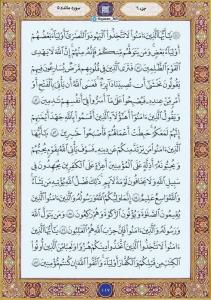 جزء ٦
سورة مائدة ٥
يَا أَيُّهَا الَّذِينَ آمَنُوا لَا تَتَّخِذُوا الْيَهُودَ وَالنَّصَارَىٰ أَوْلِيَاءَ بَعْضُهُمْ
أَوْلِيَاءُ بَعْضٍ وَمَن يَتَوَلَّهُم مِّنكُمْ فَإِنَّهُ مِنْهُمْ إِنَّ اللَّهَ لَا يَهْدِي
الْقَوْمَ الظَّالِمِينَ ٥١ فَتَرَى الَّذِينَ فِي قُلُوبِهِم مَّرَضٌ يُسَارِعُونَ فِيهِمْ
يَقُولُونَ نَخْشَىٰ أَن تُصِيبَنَا دَائِرَةٌ فَعَسَى اللَّهُ أَن يَأْتِيَ بِالْفَتْحِ أَوْ
أَمْرٍ مِّنْ عِندِهِ فَيُصْبِحُوا عَلَىٰ مَا أَسَرُّوا فِي أَنفُسِهِمْ نَادِمِينَ ٥٢
وَيَقُولُ الَّذِينَ آمَنُوا أَهَٰؤُلَاءِ الَّذِينَ أَقْسَمُوا بِاللَّهِ جَهْدَ أَيْمَانِهِمْ
إِنَّهُمْ لَمَعَكُمْ حَبِطَتْ أَعْمَالُهُمْ فَأَصْبَحُوا خَاسِرِينَ ٥٣
يَا أَيُّهَا الَّذِينَ آمَنُوا مَن يَرْتَدَّ مِنكُمْ عَن دِينِهِ فَسَوْفَ يَأْتِي اللَّهُ بِقَوْمٍ
يُحِبُّهُمْ وَيُحِبُّونَهُ أَذِلَّةٍ عَلَى الْمُؤْمِنِينَ أَعِزَّةٍ عَلَى الْكَافِرِينَ يُجَاهِدُونَ فِي
سَبِيلِ اللَّهِ وَلَا يَخَافُونَ لَوْمَةَ لَائِمٍ ذَٰلِكَ فَضْلُ اللَّهِ يُؤْتِيهِ مَن يَشَاءُ
وَاللَّهُ وَاسِعٌ عَلِيمٌ ٥٤ إِنَّمَا وَلِيُّكُمُ اللَّهُ وَرَسُولُهُ وَالَّذِينَ آمَنُوا الَّذِينَ
يُقِيمُونَ الصَّلَاةَ وَيُؤْتُونَ الزَّكَاةَ وَهُمْ رَاكِعُونَ ٥٥ وَمَن يَتَوَلَّ اللَّهَ
وَرَسُولَهُ وَالَّذِينَ آمَنُوا فَإِنَّ حِزْبَ اللَّهِ هُمُ الْغَالِبُونَ ٥٦ يَا أَيُّهَا
الَّذِينَ آمَنُوا لَا تَتَّخِذُوا الَّذِينَ اتَّخَذُوا دِينَكُمْ هُزُوًا وَلَعِبًا مِّنَ الَّذِينَ أُوتُوا
الْكِتَابَ مِن قَبْلِكُمْ وَالْكُفَّارَ أَوْلِيَاءَ وَاتَّقُوا اللَّهَ إِن كُنتُم مُّؤْمِنِينَ ٥٧
١١٧